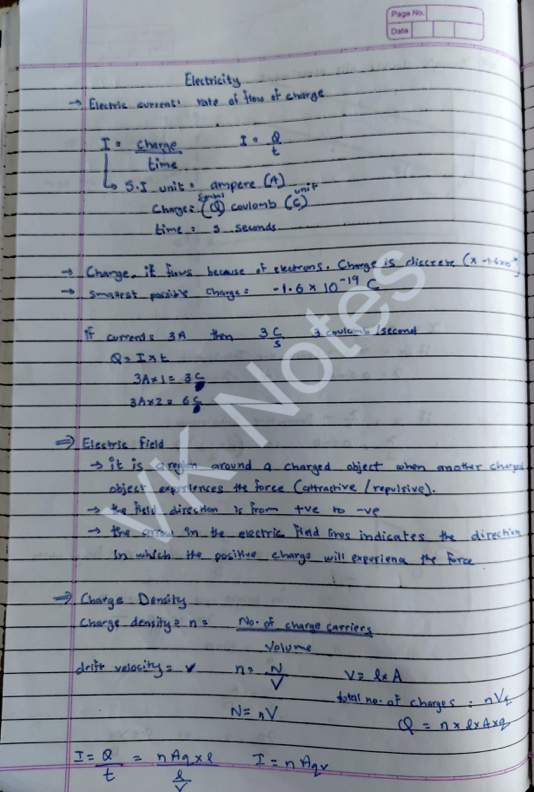 Page No.
Date
Electricity
→ Electric current: rate of flow of charge
I = charge / time    I = Q / t
↳ S.I unit = ampere (A)
Charge = (Q) coulomb (C)
symbol unit
time = s seconds
→ Charge. it flows because of electrons. Charge is discrete
→ smallest possible charge = -1.6 × 10⁻¹⁹ C
if current = 3A then 3 C/s 3 coulomb/second
Q = I × t
3A×1 = 3C
3A×2 = 6C
⇒ Electric Field
→ it is a region around a charged object when another charged
object experiences the force (attractive / repulsive).
→ the field direction is from +ve to -ve
→ the arrow in the electric field lines indicates the direction
in which the positive charge will experience the force
⇒ Charge Density
Charge density = n = No. of charge carriers / Volume
drift velocity = v    n = N / V    V = l × A
total no. of charges = nVq
N = nV    Q = n × l × A × q
I = Q / t = nAq × l / (l / v)    I = nAqv
VK Notes